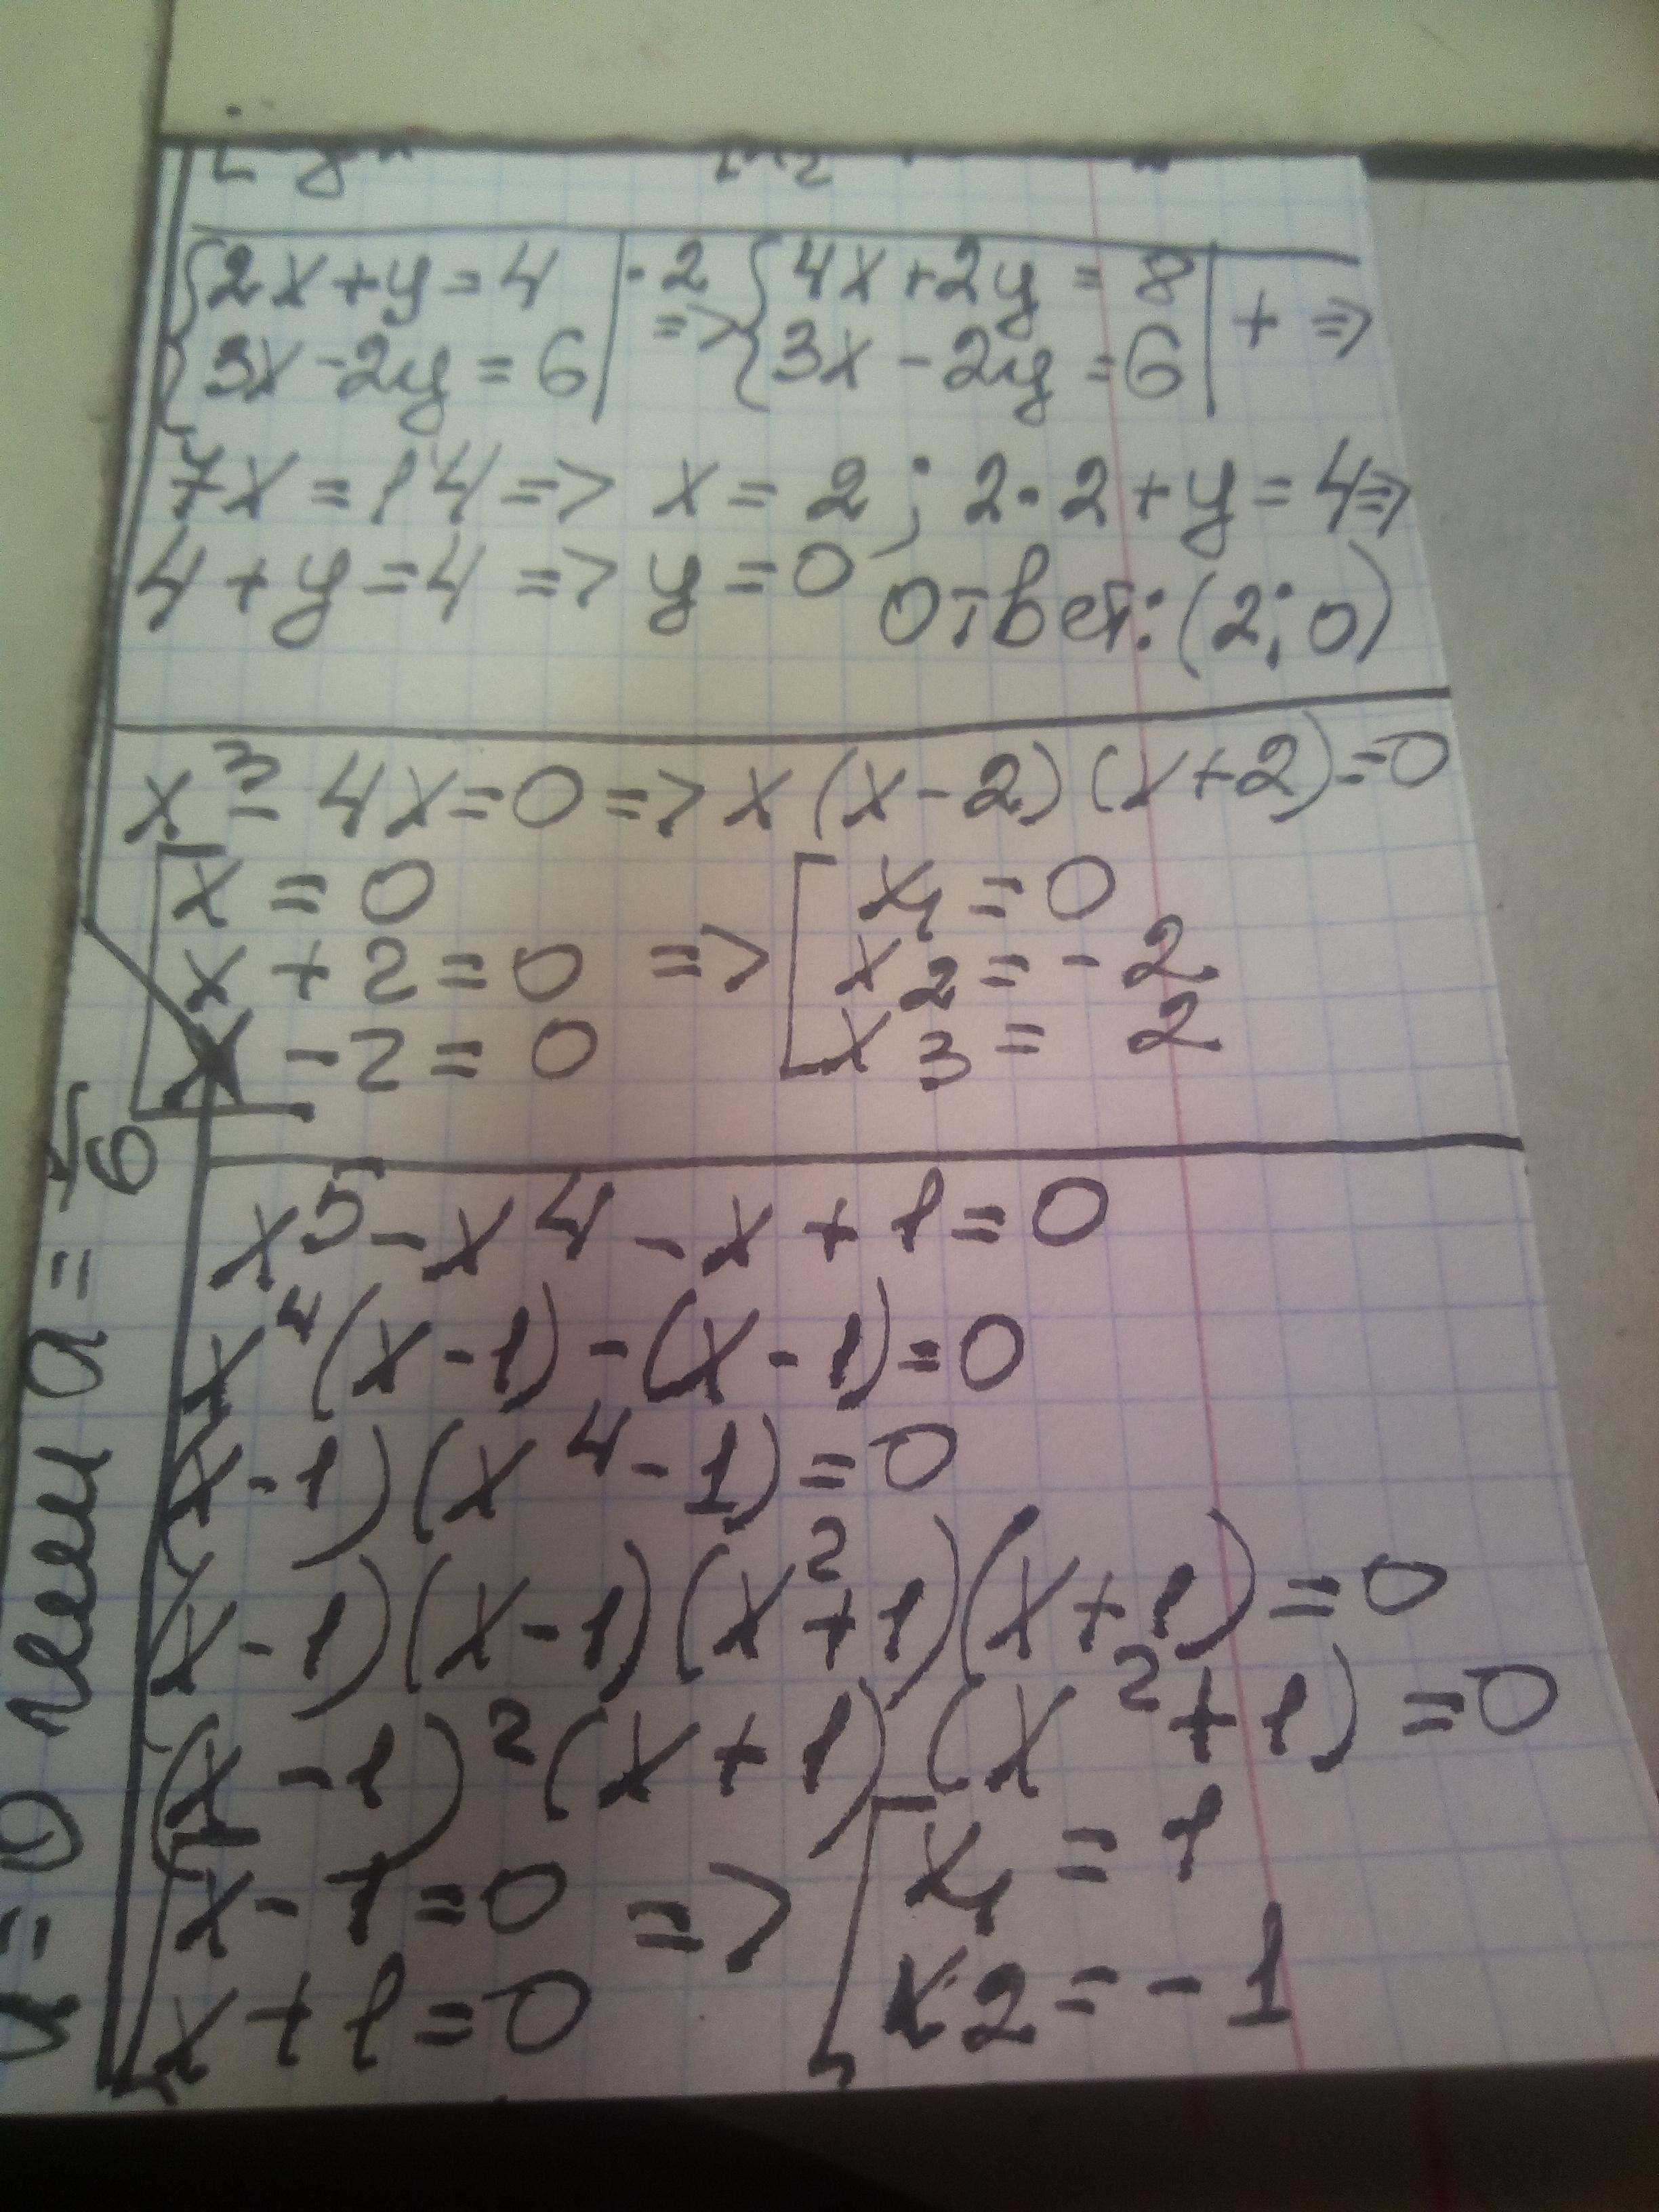 {2x+y=4 |·2 => {4x+2y=8 | + =>
{3x-2y=6 | {3x-2y=6 |
7x=14 => x=2; 2·2+y=4=>
4+y=4 => y=0 Ответ: (2;0)
x³-4x=0=>x(x-2)(x+2)=0
[x=0 [x₁=0
x+2=0 => x₂=-2
x-2=0 x₃=2
x⁵-x⁴-x+1=0
x⁴(x-1)-(x-1)=0
(x-1)(x⁴-1)=0
(x-1)(x-1)(x²+1)(x+1)=0
(x-1)²(x+1)(x²+1)=0
[x-1=0 => [x₁=1
x+1=0 x2=-1
=0 или a=5/6